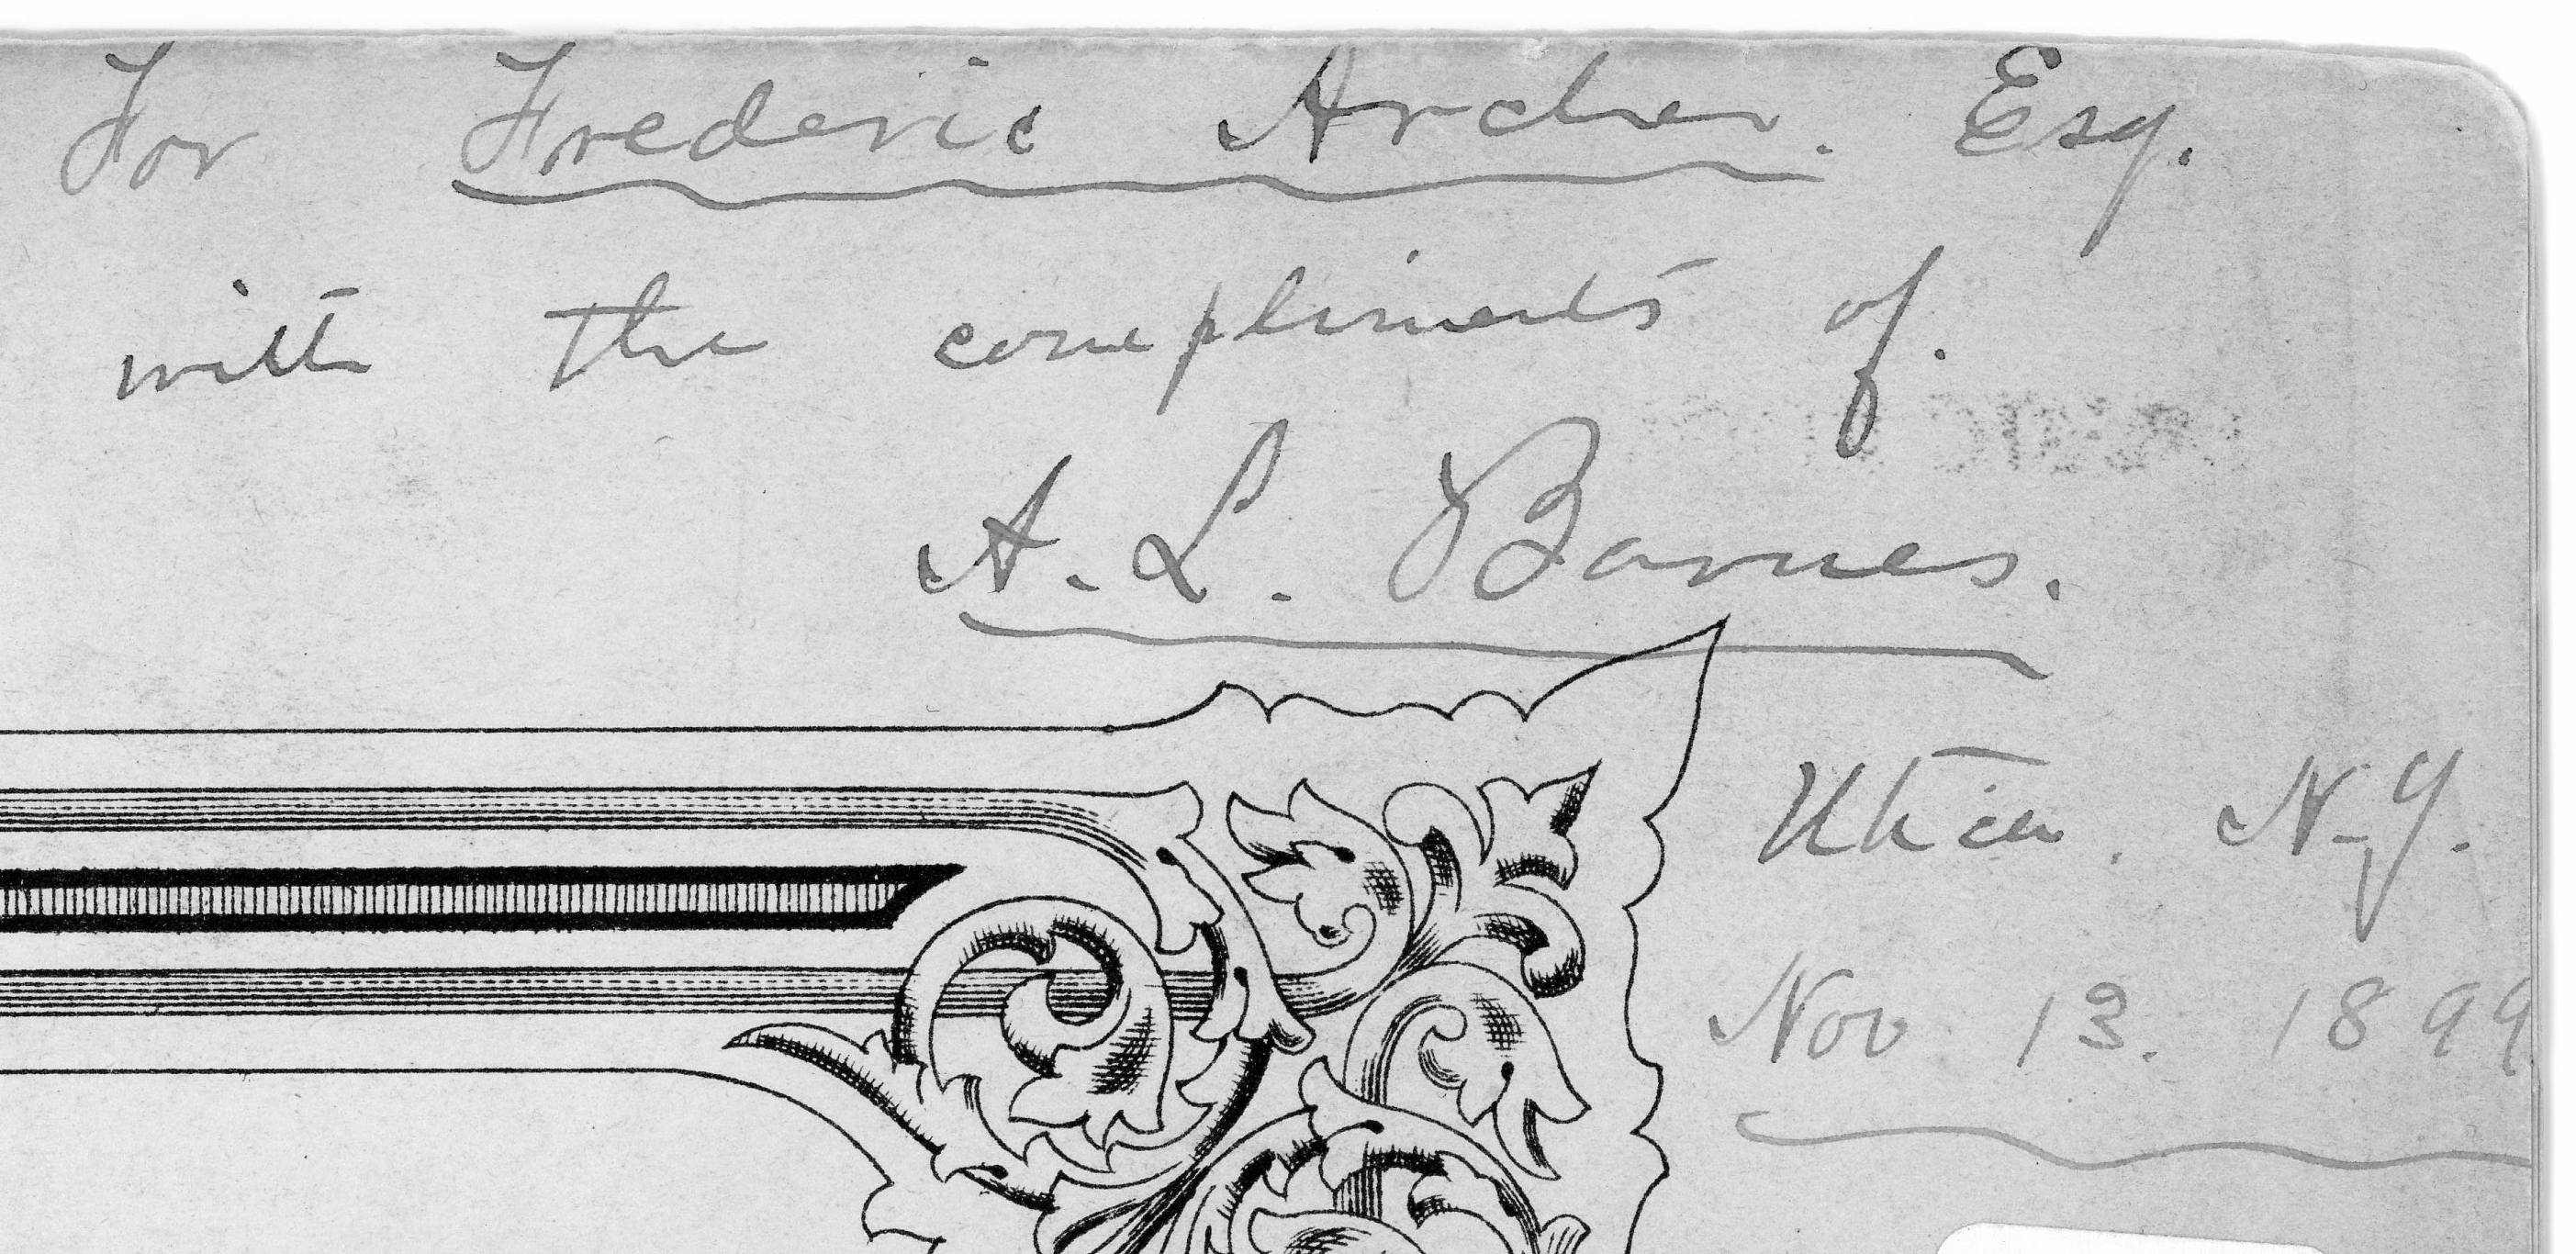 For Frederic Archer. Esq.
with the compliments of.
A. L. Barnes.
Utica. N.Y.
Nov 13. 1899